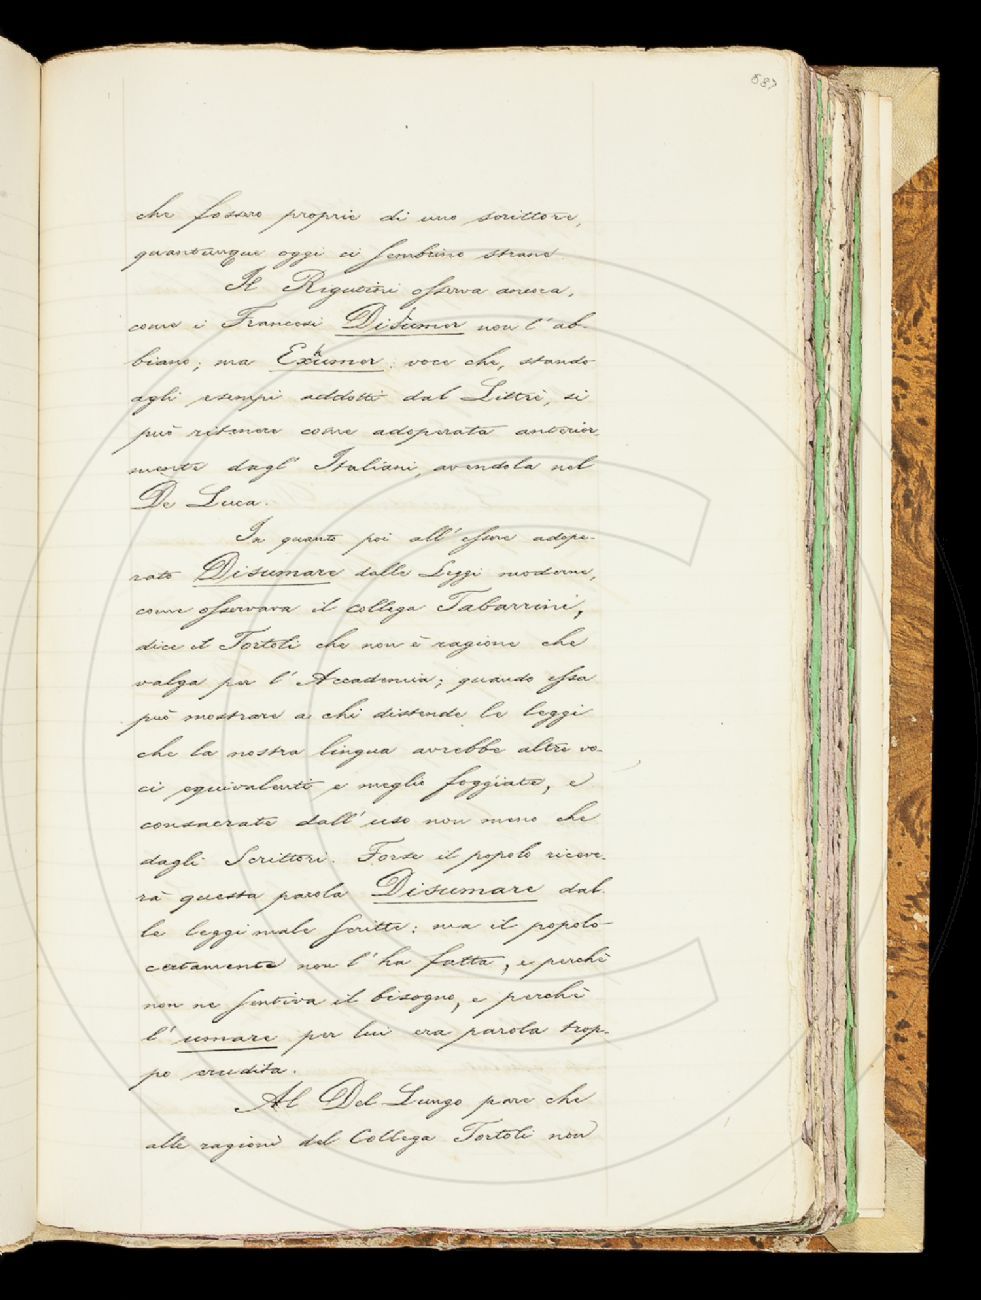 587
che fossero proprie di uno scrittore,
quantunque oggi ci sembrino strane.
Il Rigutini osserva ancora,
come i Francesi Disumer non l'ab-
biano; ma Exhumer: voce che, stando
agli esempi addotti dal Littré, si
può ritenere come adoperata anterior-
mente dagl' Italiani, avendola nel
De Luca.
In quanto poi all' essere adope-
rato Disumare dalle Leggi moderne,
come osservava il collega Tabarrini,
dice il Tortoli che non è ragione che
valga per l' Accademia; quando essa
può mostrare a chi distende le leggi
che la nostra lingua avrebbe altre vo-
ci equivalenti e meglio foggiate, e
consacrate dall' uso non meno che
dagli Scrittori. Forse il popolo riceve-
rà questa parola Disumare dal-
le leggi male scritte: ma il popolo
certamente non l' ha fatta, e perchè
non ne sentiva il bisogno, e perchè
l' umare per lui era parola trop-
po erudita.
Al Del Lungo pare che
alle ragioni del Collega Tortoli non